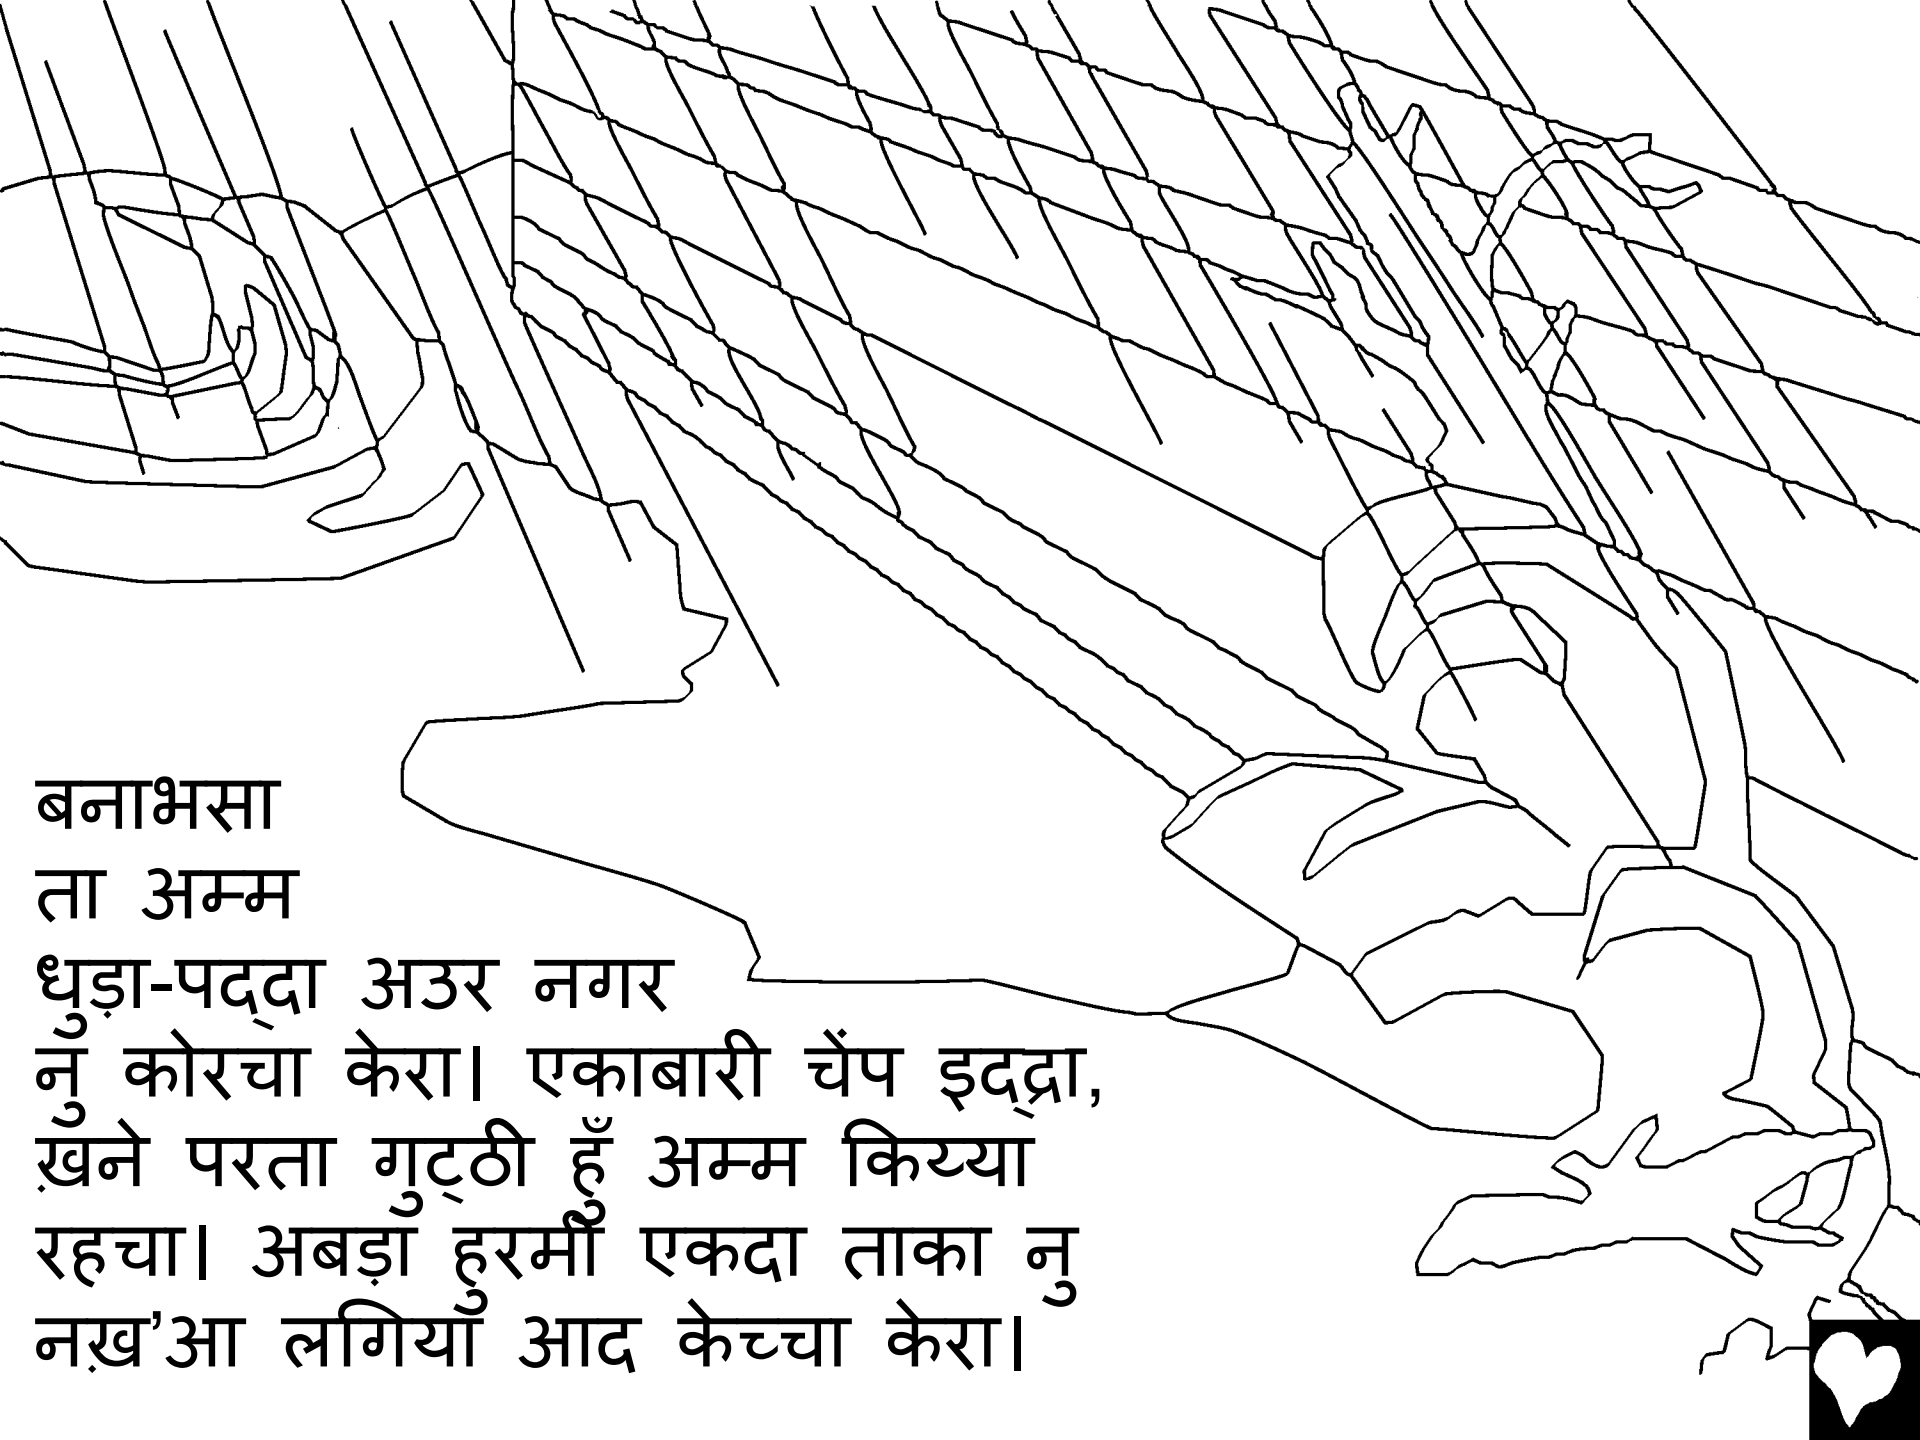 बनाभसा
ता अम्म
धुड़ा-पद्‌दा अउर नगर
नु कोरचा केरा। एकाबारी चेंप इद्‌द्रा,
ख़ने परता गुट्‌ठी हुँ अम्म किय्या
रहचा। अबड़ा हुरमी एकदा ताका नु
नख़’आ लगिया आद केच्चा केरा।